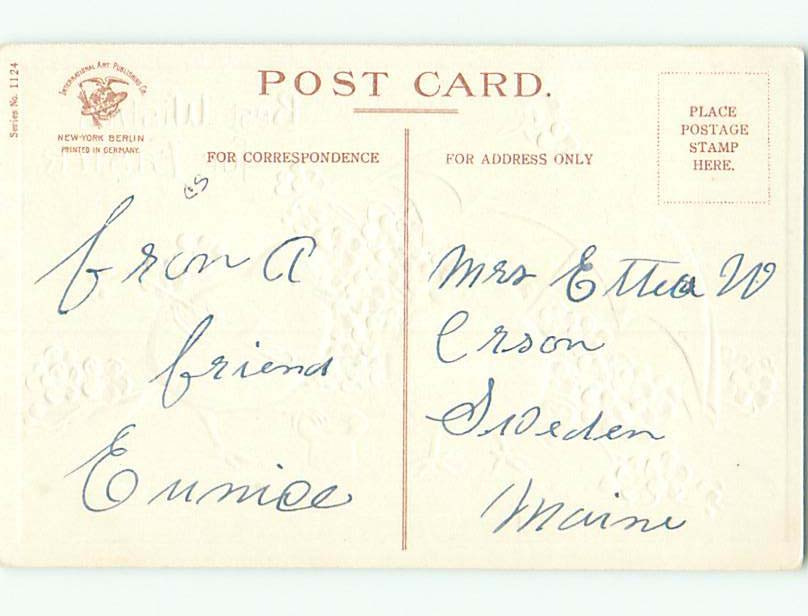 Series No. 1124
INTERNATIONAL ART PUBLISHING Co.
NEW-YORK BERLIN
PRINTED IN GERMANY.
POST CARD.
PLACE
POSTAGE
STAMP
HERE.
FOR CORRESPONDENCE
FOR ADDRESS ONLY
from A
friend
Eunice
Mrs Etta W
Erson
Sweden
Maine